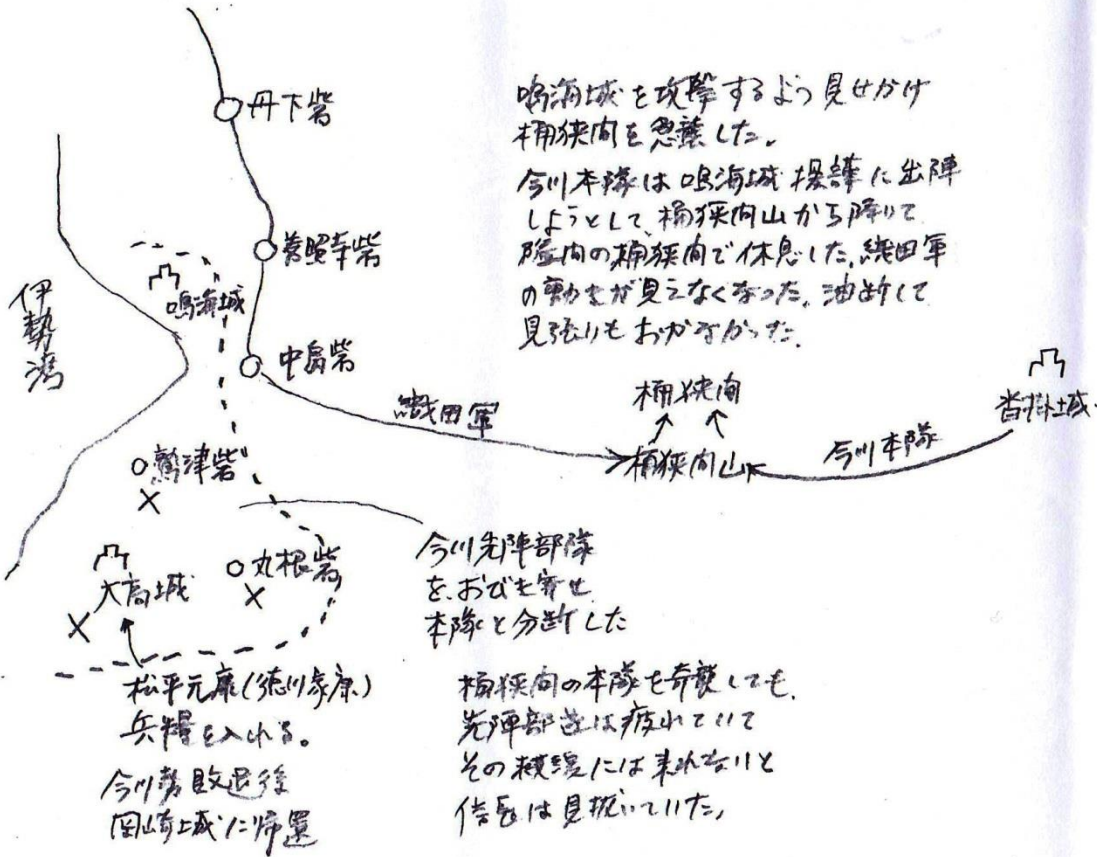 丹下砦
善照寺砦
鳴海城
中島砦
伊勢湾
鳴海城を攻撃するよう見せかけ
桶狭間を急襲した。
今川本隊は鳴海城援護に出陣
しようとして、桶狭間山から降りて
隘間の桶狭間で休息した、織田軍
の動きが見えなくなった、油断して
見張りもおかなかった。
織田軍
桶狭間
桶狭間山
今川本隊
沓掛城
鷲津砦
丸根砦
大高城
今川先陣部隊
を、おびき寄せ
本隊と分断した
松平元康(徳川家康)
兵糧を入れる。
今川勢敗退後
岡崎城に帰還
桶狭間の本隊を奇襲しても、
先陣部隊は疲れていて
その救援には来れないと
信長は見抜いていた。